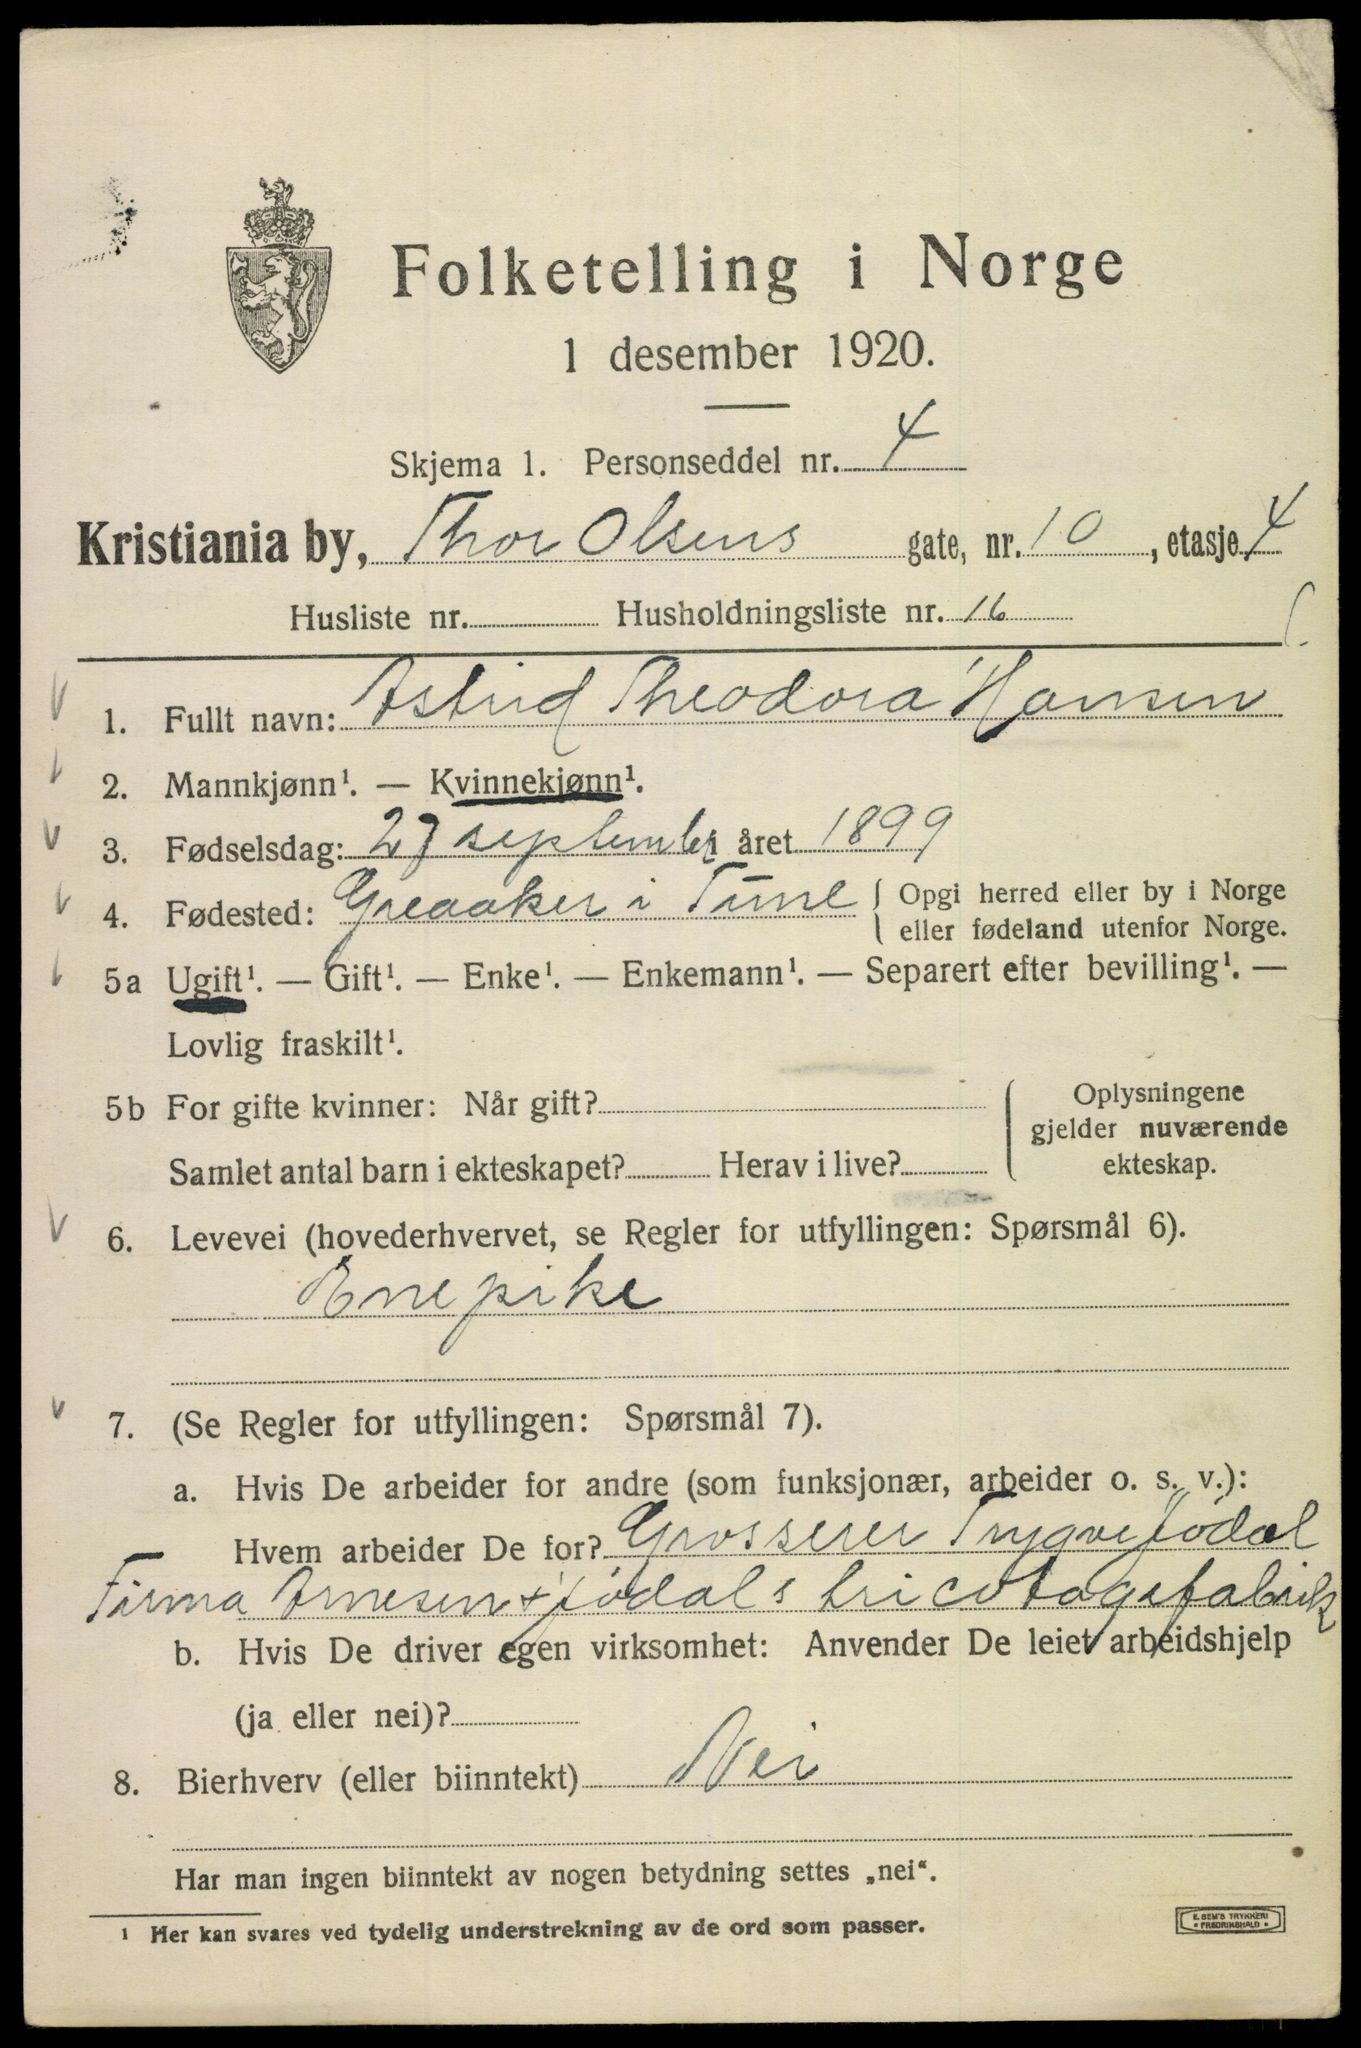 Folketelling i Norge
1 desember 1920.
Skjema 1. Personseddel nr. 4
Kristiania by, Thor Olsens gate, nr. 10, etasje 4
Husliste nr. Husholdningsliste nr. 16
1. Fullt navn: Astrid Theodora Hansen
2. Mannkjønn¹. — Kvinnekjønn¹.
3. Fødselsdag: 27 september året 1899
4. Fødested: Greaaker i Tune { Opgi herred eller by i Norge
eller fødeland utenfor Norge.
5a Ugift¹. — Gift¹. — Enke¹. — Enkemann¹. — Separert efter bevilling¹. —
Lovlig fraskilt¹.
5b For gifte kvinner: Når gift? Oplysningene
gjelder nuværende
Samlet antal barn i ekteskapet? Herav i live? ekteskap.
6. Levevei (hovederhvervet, se Regler for utfyllingen: Spørsmål 6).
Enepike
7. (Se Regler for utfyllingen: Spørsmål 7).
a. Hvis De arbeider for andre (som funksjonær, arbeider o. s. v.):
Hvem arbeider De for? Grosserer Trygve Jödal
Firma Arnesen & Jödals tricotagefabrik
b. Hvis De driver egen virksomhet: Anvender De leiet arbeidshjelp
(ja eller nei)?
8. Bierhverv (eller biinntekt) Nei
Har man ingen biinntekt av nogen betydning settes „nei“.
¹ Her kan svares ved tydelig understrekning av de ord som passer.
E. SEM'S TRYKKERI
* FREDRIKSHALD *